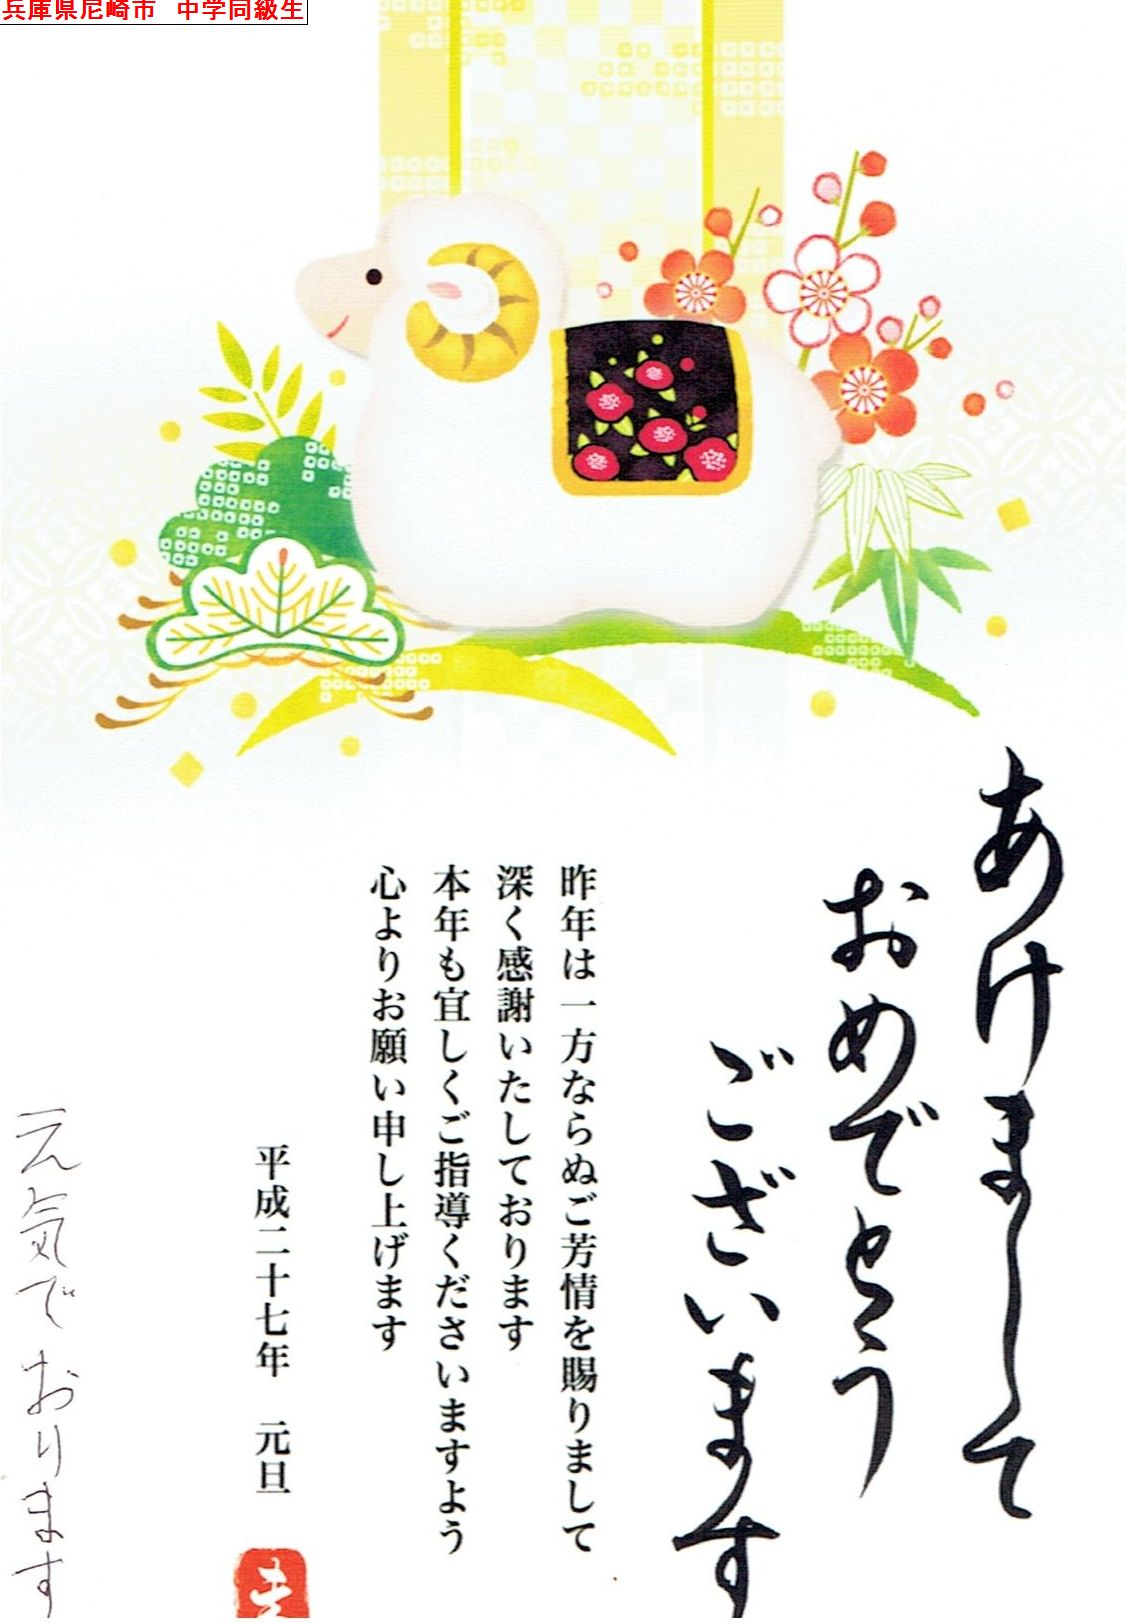 兵庫県尼崎市 中学同級生
あけまして
おめでとう
ございます
昨年は一方ならぬご芳情を賜りまして
深く感謝いたしております
本年も宜しくご指導くださいますよう
心よりお願い申し上げます
平成二十七年 元旦
元気でおります